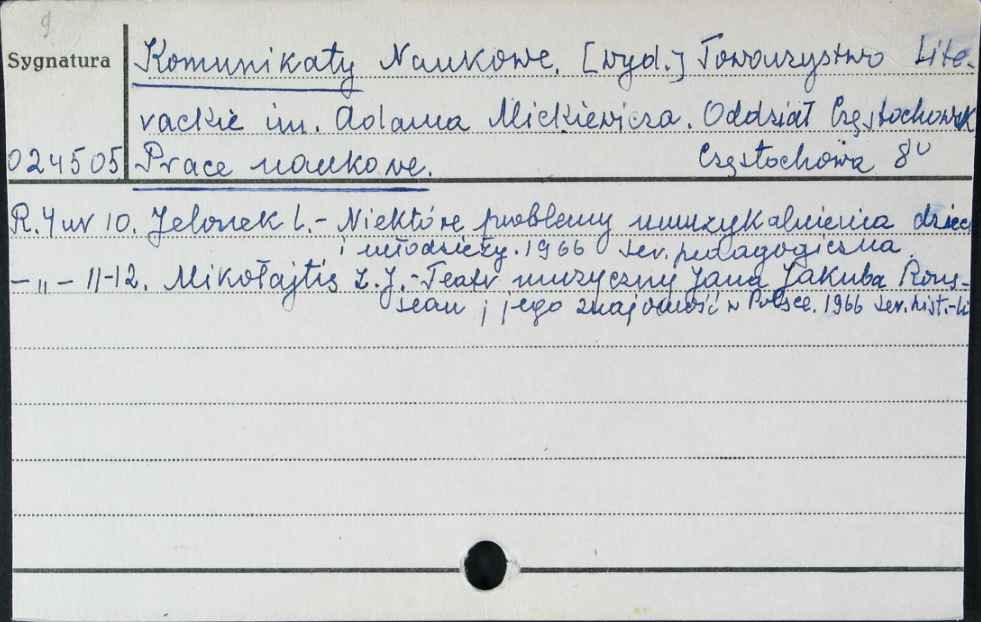 9
Sygnatura Komunikaty Naukowe. [wyd.] Towarzystwo Lite-
rackie im. Adama Mickiewicza. Oddział Częstochowsk
024505 Prace naukowe. Częstochowa 8°
R. 4 nr 10. Jelonek L. - Niektóre problemy umuzykalnienia dzieci
i młodzieży. 1966 Ser. pedagogiczna
- " - 11-12. Mikołajtis Z. J. - Teatr muzyczny Jana Jakuba Rous-
seau i jego znajomość w Polsce. 1966 Ser. hist.-li